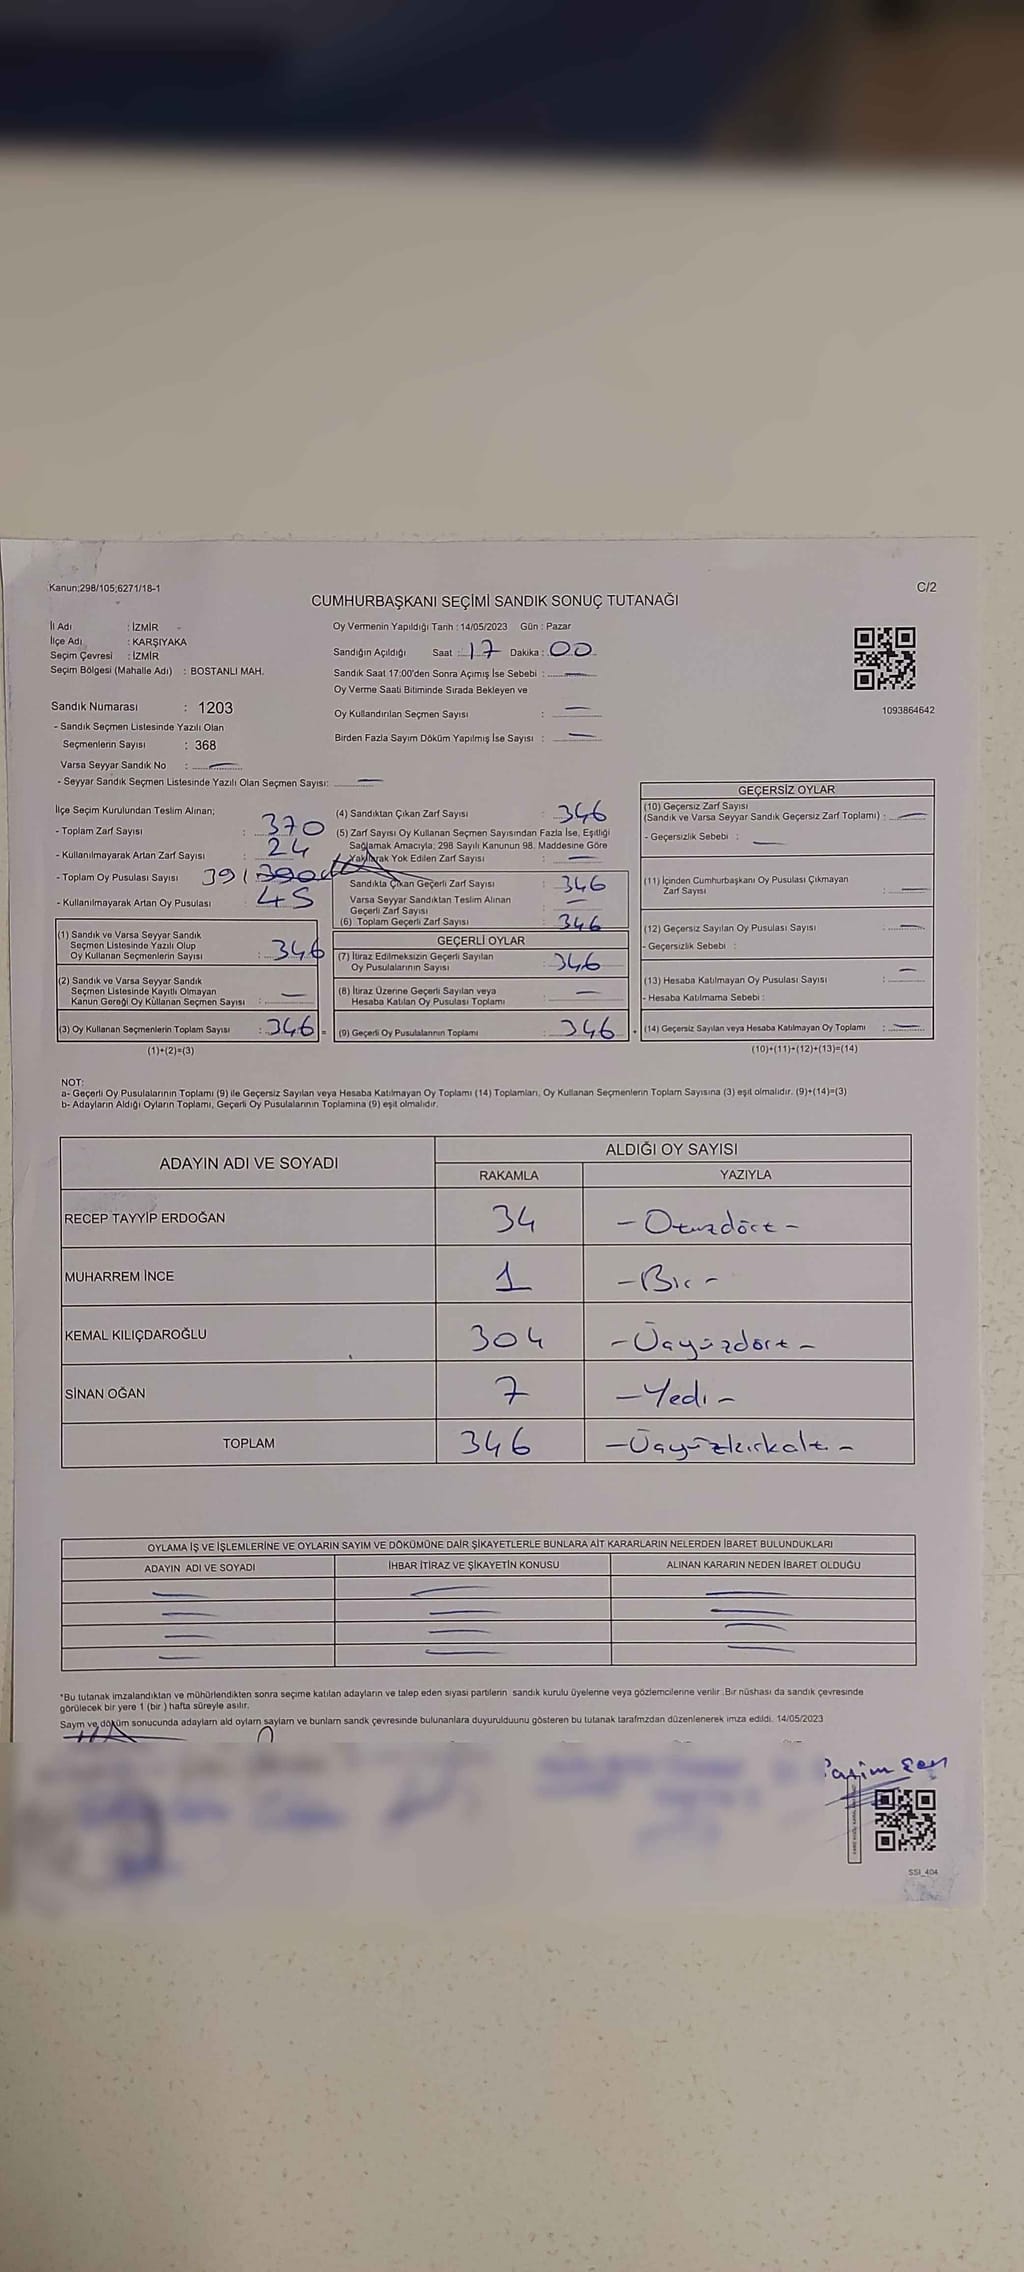 Kanun;298/105;6271/18-1
C/2
CUMHURBAŞKANI SEÇİMİ SANDIK SONUÇ TUTANAĞI
İl Adı : İZMİR
İlçe Adı : KARŞIYAKA
Seçim Çevresi : İZMİR
Seçim Bölgesi (Mahalle Adı) : BOSTANLI MAH.
Sandık Numarası : 1203
- Sandık Seçmen Listesinde Yazılı Olan
Seçmenlerin Sayısı : 368
Varsa Seyyar Sandık No :
- Seyyar Sandık Seçmen Listesinde Yazılı Olan Seçmen Sayısı:
Oy Vermenin Yapıldığı Tarih : 14/05/2023 Gün : Pazar
Sandığın Açıldığı Saat : 17 Dakika : 00
Sandık Saat 17:00'den Sonra Açımış İse Sebebi :
Oy Verme Saati Bitiminde Sırada Bekleyen ve
Oy Kullandırılan Seçmen Sayısı :
Birden Fazla Sayım Döküm Yapılmış İse Sayısı :
1093864642
İlçe Seçim Kurulundan Teslim Alınan;
- Toplam Zarf Sayısı : 370
- Kullanılmayarak Artan Zarf Sayısı : 24
- Toplam Oy Pusulası Sayısı 391 390
- Kullanılmayarak Artan Oy Pusulası : 45
(1) Sandık ve Varsa Seyyar Sandık
Seçmen Listesinde Yazılı Olup
Oy Kullanan Seçmenlerin Sayısı : 346
(2) Sandık ve Varsa Seyyar Sandık
Seçmen Listesinde Kayıtlı Olmayan
Kanun Gereği Oy Kullanan Seçmen Sayısı :
(3) Oy Kullanan Seçmenlerin Toplam Sayısı : 346 =
(1)+(2)=(3)
(4) Sandıktan Çıkan Zarf Sayısı : 346
(5) Zarf Sayısı Oy Kullanan Seçmen Sayısından Fazla İse, Eşitliği
Sağlamak Amacıyla; 298 Sayılı Kanunun 98. Maddesine Göre
Yakılarak Yok Edilen Zarf Sayısı :
Sandıkta Çıkan Geçerli Zarf Sayısı : 346
Varsa Seyyar Sandıktan Teslim Alınan
Geçerli Zarf Sayısı :
(6) Toplam Geçerli Zarf Sayısı : 346
GEÇERLİ OYLAR
(7) İtiraz Edilmeksizin Geçerli Sayılan
Oy Pusulalarının Sayısı : 346
(8) İtiraz Üzerine Geçerli Sayılan veya
Hesaba Katılan Oy Pusulası Toplamı :
(9) Geçerli Oy Pusulalarının Toplamı : 346 +
GEÇERSİZ OYLAR
(10) Geçersiz Zarf Sayısı
(Sandık ve Varsa Seyyar Sandık Geçersiz Zarf Toplamı) :
- Geçersizlik Sebebi :
(11) İçinden Cumhurbaşkanı Oy Pusulası Çıkmayan
Zarf Sayısı :
(12) Geçersiz Sayılan Oy Pusulası Sayısı :
- Geçersizlik Sebebi :
(13) Hesaba Katılmayan Oy Pusulası Sayısı :
- Hesaba Katılmama Sebebi :
(14) Geçersiz Sayılan veya Hesaba Katılmayan Oy Toplamı :
(10)+(11)+(12)+(13)=(14)
NOT:
a- Geçerli Oy Pusulalarının Toplamı (9) ile Geçersiz Sayılan veya Hesaba Katılmayan Oy Toplamı (14) Toplamları, Oy Kullanan Seçmenlerin Toplam Sayısına (3) eşit olmalıdır. (9)+(14)=(3)
b- Adayların Aldığı Oyların Toplamı, Geçerli Oy Pusulalarının Toplamına (9) eşit olmalıdır.
ADAYIN ADI VE SOYADI
ALDIĞI OY SAYISI
RAKAMLA YAZIYLA
RECEP TAYYİP ERDOĞAN 34 - Otuzdört -
MUHARREM İNCE 1 - Bir -
KEMAL KILIÇDAROĞLU 304 - Üçyüzdört -
SİNAN OĞAN 7 - Yedi -
TOPLAM 346 - Üçyüzkırkaltı -
OYLAMA İŞ VE İŞLEMLERİNE VE OYLARIN SAYIM VE DÖKÜMÜNE DAİR ŞİKAYETLERLE BUNLARA AİT KARARLARIN NELERDEN İBARET BULUNDUKLARI
ADAYIN ADI VE SOYADI İHBAR İTİRAZ VE ŞİKAYETİN KONUSU ALINAN KARARIN NEDEN İBARET OLDUĞU
*Bu tutanak imzalandıktan ve mühürlendikten sonra seçime katılan adayların ve talep eden siyasi partilerin sandık kurulu üyelerine veya gözlemcilerine verilir. Bir nüshası da sandık çevresinde
görülecek bir yere 1 (bir) hafta süreyle asılır.
Sayım ve döküm sonucunda adayların ald oyların sayların ve bunların sandk çevresinde bulunanlara duyurulduunu gösteren bu tutanak tarafmzdan düzenlenerek imza edildi. 14/05/2023
SSI_404